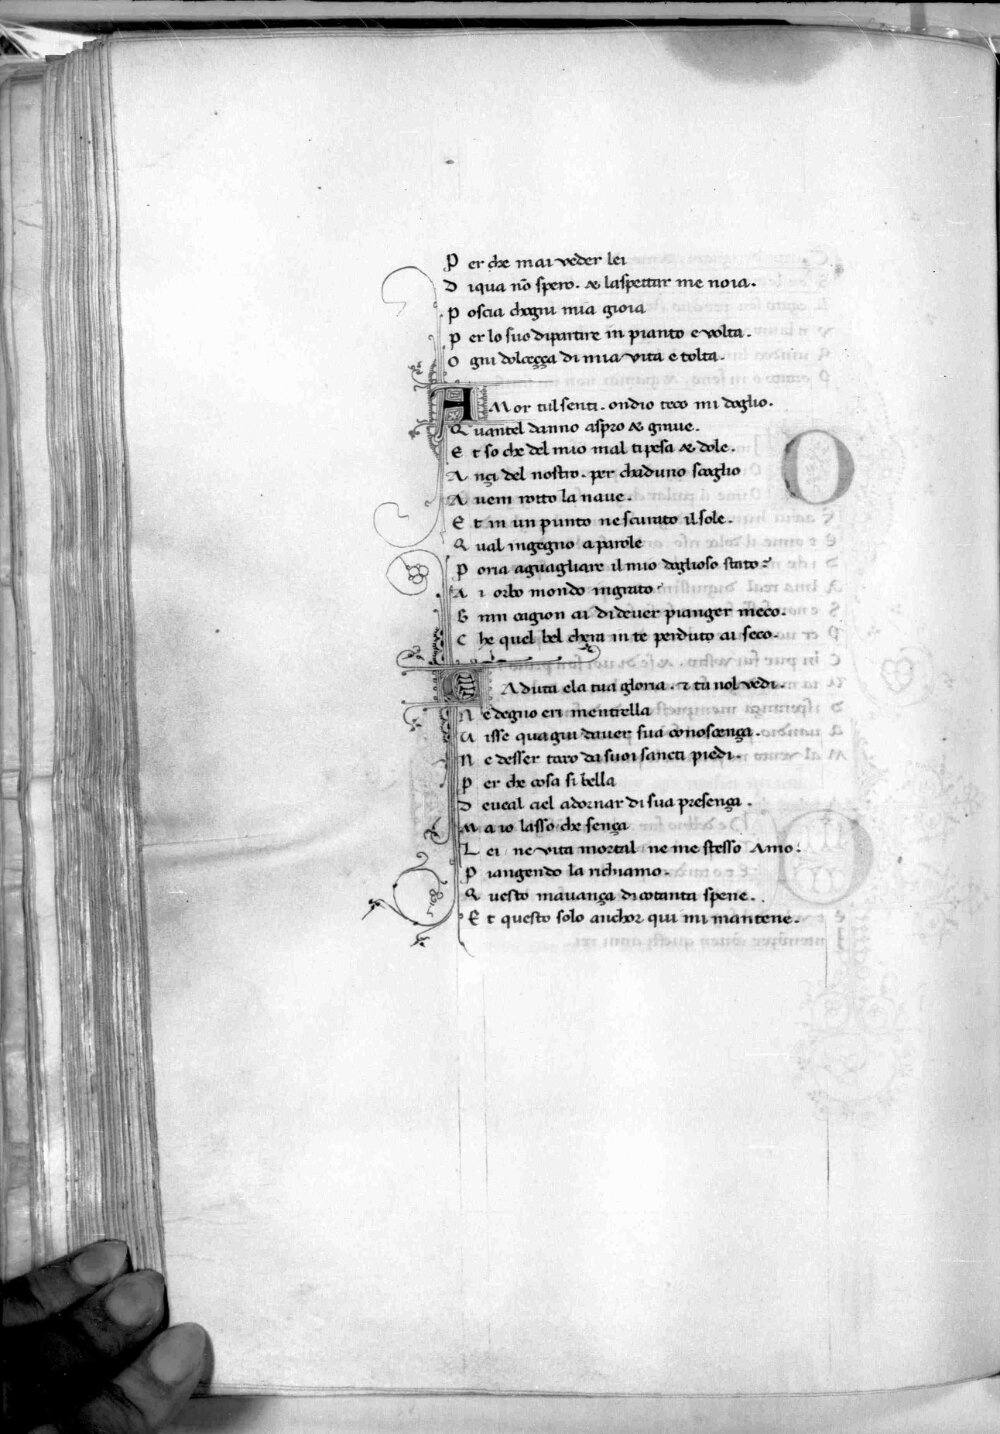 P er che mai veder lei
D iqua nõ spero. & laspettar me noia.
P oscia chogni mia gioia
P er lo suo dipartire in pianto e volta.
O gni dolceçça di mia vita e tolta.
A Mor tul senti. ondio teco mi doglio.
Q uantel danno aspro & grave.
E t so che del mio mal ti pesa & dole.
A nçi del nostro. per chaduno scoglio
A vem rotto la nave.
E t in un punto ne scurato il sole.
Q ual ingegno a parole
P oria aguagliare il mio doglioso stato
A i orbo mondo ingrato
G ran cagion ai di dever pianger meco.
C he quel bel chera in te perduto ai seco.
C Aduta ela tua gloria. & tu nol vedi.
N e degno eri mentrella
V isse qua giu daver sua conoscença.
N e desser tocco da suoi sancti piedi.
P er che cosa si bella
D eveal ciel adornar di sua presença.
M a io lasso che sença
L ei ne vita mortal ne me stesso Amo.
P iangendo la richiamo.
Q uesto mavança di cotanta spene.
E t questo solo anchor qui mi mantene.